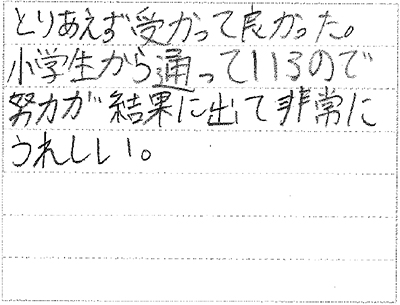 とりあえず受かって良かった。
小学生から通っているので
努力が結果に出て非常に
うれしい。